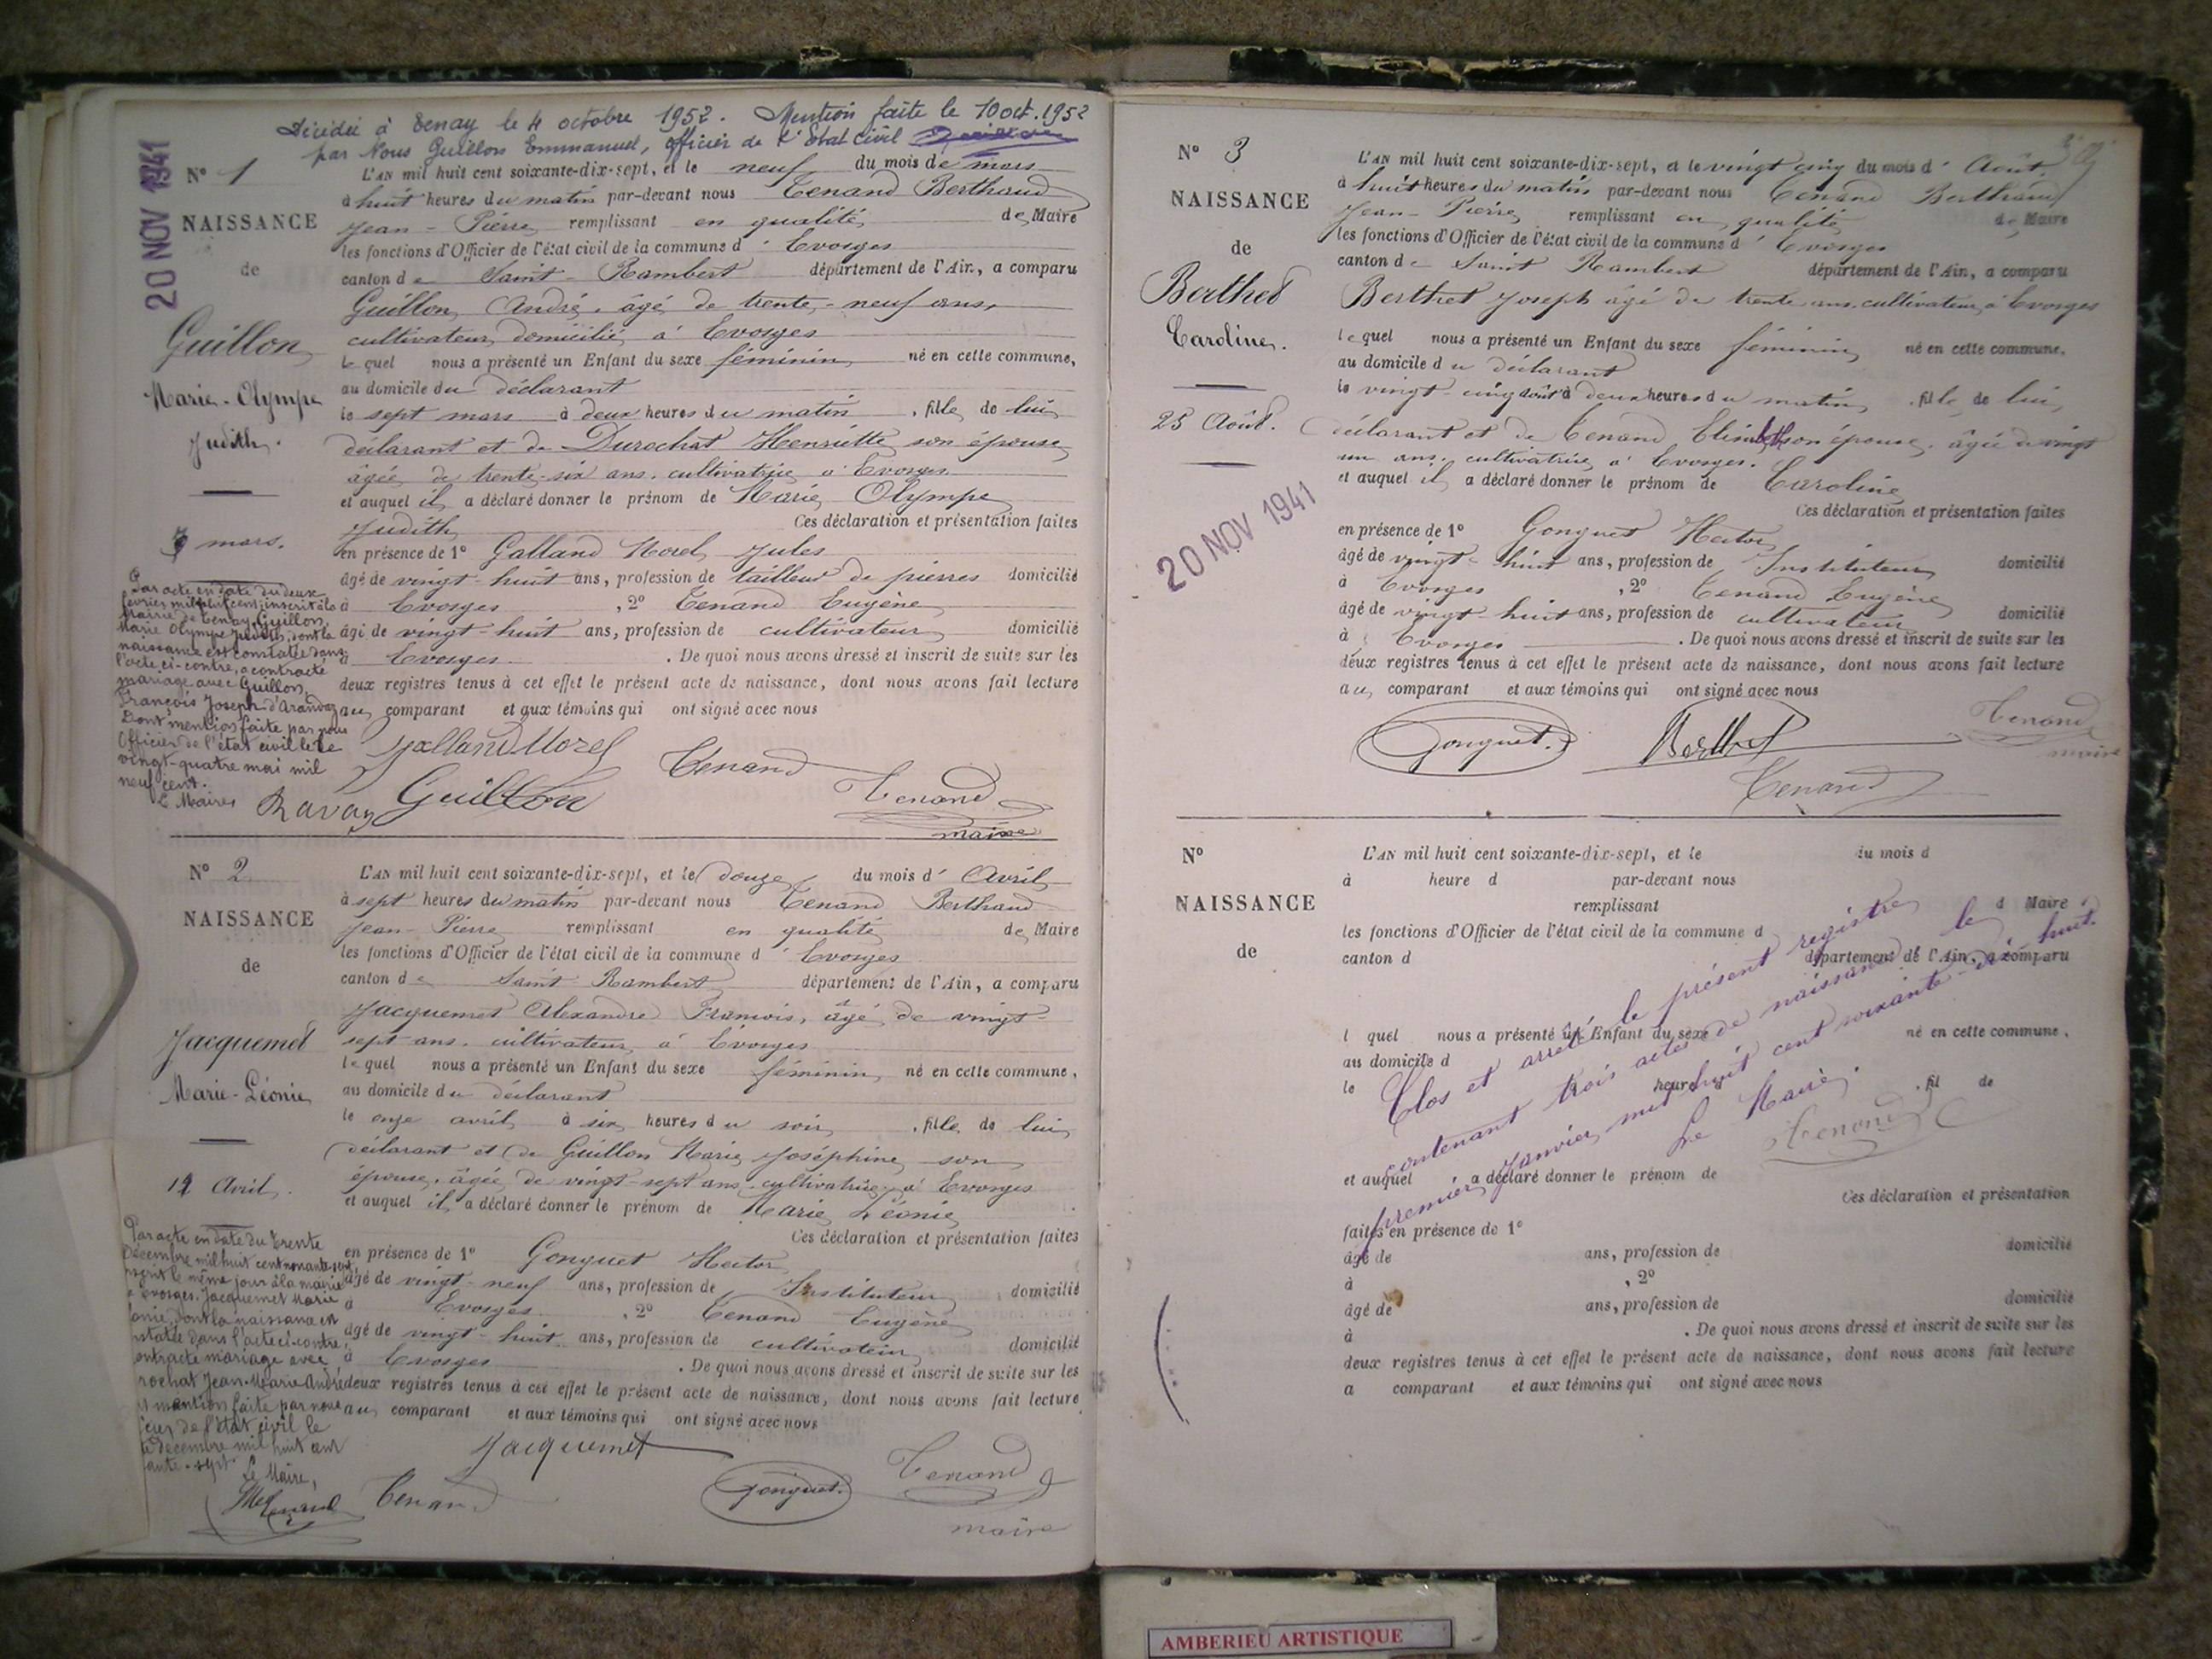 Décédée à Tenay le 4 octobre 1952. Mention faite le 10 oct. 1952
par Nous Guillon Emmanuel, officier de l'Etat civil
20 NOV 1941
N° 1
NAISSANCE
de
Guillon
Marie-Olympe
Judith.
7 mars.
L'AN mil huit cent soixante-dix-sept, et le neuf du mois de mars
à huit heures du matin par-devant nous Tenand Berthaud
Jean-Pierre remplissant en qualité de Maire
les fonctions d'Officier de l'état civil de la commune d'Evosges
canton de Saint-Rambert département de l'Ain, a comparu
Guillon André, âgé de trente-neuf ans,
cultivateur, domicilié à Evosges
lequel nous a présenté un Enfant du sexe féminin né en cette commune,
au domicile du déclarant
le sept mars à deux heures du matin, fille de lui
déclarant et de Durochat Henriette son épouse
âgée de trente-six ans, cultivatrice à Evosges
et auquel il a déclaré donner le prénom de Marie Olympe
Judith Ces déclaration et présentation faites
en présence de 1° Galland Morel Jules
âgé de vingt-huit ans, profession de tailleur de pierres domicilié
à Evosges, 2° Tenand Eugène
âgé de vingt-huit ans, profession de cultivateur domicilié
à Evosges. De quoi nous avons dressé et inscrit de suite sur les
deux registres tenus à cet effet le présent acte de naissance, dont nous avons fait lecture
au comparant et aux témoins qui ont signé avec nous
Par acte en date du deux
février mil neuf cent, inscrit à la
mairie de Tenay, Guillon,
Marie Olympe Judith, dont la
naissance est constatée dans
l'acte ci-contre, a contracté
mariage avec Guillon,
François Joseph d'Arandas
Dont mention faite par nous
Officier de l'état civil le
vingt-quatre mai mil
neuf cent.
Le Maire
Ravaz
Galland Morel
Guillon
Tenand
Tenand
maire
N° 2
NAISSANCE
de
Jacquemet
Marie-Léonie
Avril.
L'AN mil huit cent soixante-dix-sept, et le douze du mois d'Avril
à sept heures du matin par-devant nous Tenand Berthaud
Jean-Pierre remplissant en qualité de Maire
les fonctions d'Officier de l'état civil de la commune d'Evosges
canton de Saint Rambert département de l'Ain, a comparu
Jacquemet Alexandre François, âgé de vingt-
sept ans, cultivateur à Evosges
lequel nous a présenté un Enfant du sexe féminin né en cette commune,
au domicile du déclarant
le onze avril à six heures du soir, fille de lui
déclarant et de Guillon Marie Joséphine son
épouse, âgée de vingt-sept ans, cultivatrice à Evosges
et auquel il a déclaré donner le prénom de Marie Léonie
Ces déclaration et présentation faites
en présence de 1° Gonguet Hector
âgé de vingt-neuf ans, profession de Instituteur domicilié
à Evosges, 2° Tenand Eugène
âgé de vingt-huit ans, profession de cultivateur domicilié
à Evosges. De quoi nous avons dressé et inscrit de suite sur les
deux registres tenus à cet effet le présent acte de naissance, dont nous avons fait lecture
au comparant et aux témoins qui ont signé avec nous
Par acte en date du trente
Décembre mil huit cent nonante-sept,
inscrit le même jour à la mairie
Evosges. Jacquemet Marie
dont la naissance est
dans l'acte ci-contre,
mariage avec
Jean-Marie André
mention faite par nous
de l'état civil le
décembre mil huit cent
sept. Le Maire,
Tenand
Tenand
Jacquemet
Gonguet.
Tenand
maire
N° 3
NAISSANCE
de
Berthet
Caroline.
25 Août.
20 NOV 1941
L'AN mil huit cent soixante-dix-sept, et le vingt cinq du mois d'Août.
à huit heures du matin par-devant nous Tenand Berthaud
Jean-Pierre remplissant en qualité de Maire
les fonctions d'Officier de l'état civil de la commune d'Evosges
canton de Saint Rambert département de l'Ain, a comparu
Berthet Joseph âgé de trente ans, cultivateur à Evosges
lequel nous a présenté un Enfant du sexe féminin né en cette commune,
au domicile du déclarant
le vingt-cinq août à deux heures du matin, fille de lui
déclarant et de Tenand Elisabeth son épouse, âgée de vingt
un ans, cultivatrice à Evosges.
et auquel il a déclaré donner le prénom de Caroline
Ces déclaration et présentation faites
en présence de 1° Gonguet Hector
âgé de vingt-huit ans, profession de Instituteur domicilié
à Evosges, 2° Tenand Eugène
âgé de vingt-huit ans, profession de cultivateur domicilié
à Evosges. De quoi nous avons dressé et inscrit de suite sur les
deux registres tenus à cet effet le présent acte de naissance, dont nous avons fait lecture
au comparant et aux témoins qui ont signé avec nous
Gonguet.
Berthet
Tenand
maire
Tenand
N°
NAISSANCE
de
L'AN mil huit cent soixante-dix-sept, et le du mois d
à heure d par-devant nous
remplissant d Maire
les fonctions d'Officier de l'état civil de la commune d
canton d département de l'Ain, a comparu
l quel nous a présenté un Enfant du sexe né en cette commune,
au domicile d
le heure d, fil de
et auquel a déclaré donner le prénom de
Ces déclaration et présentation
faites en présence de 1°
âgé de ans, profession de domicilié
à , 2°
âgé de ans, profession de domicilié
à . De quoi nous avons dressé et inscrit de suite sur les
deux registres tenus à cet effet le présent acte de naissance, dont nous avons fait lecture
a comparant et aux témoins qui ont signé avec nous
Clos et arrêté le présent registre
contenant trois actes de naissance le
premier janvier mil huit cent soixante-dix-huit.
Le Maire.
Tenand
AMBERIEU ARTISTIQUE